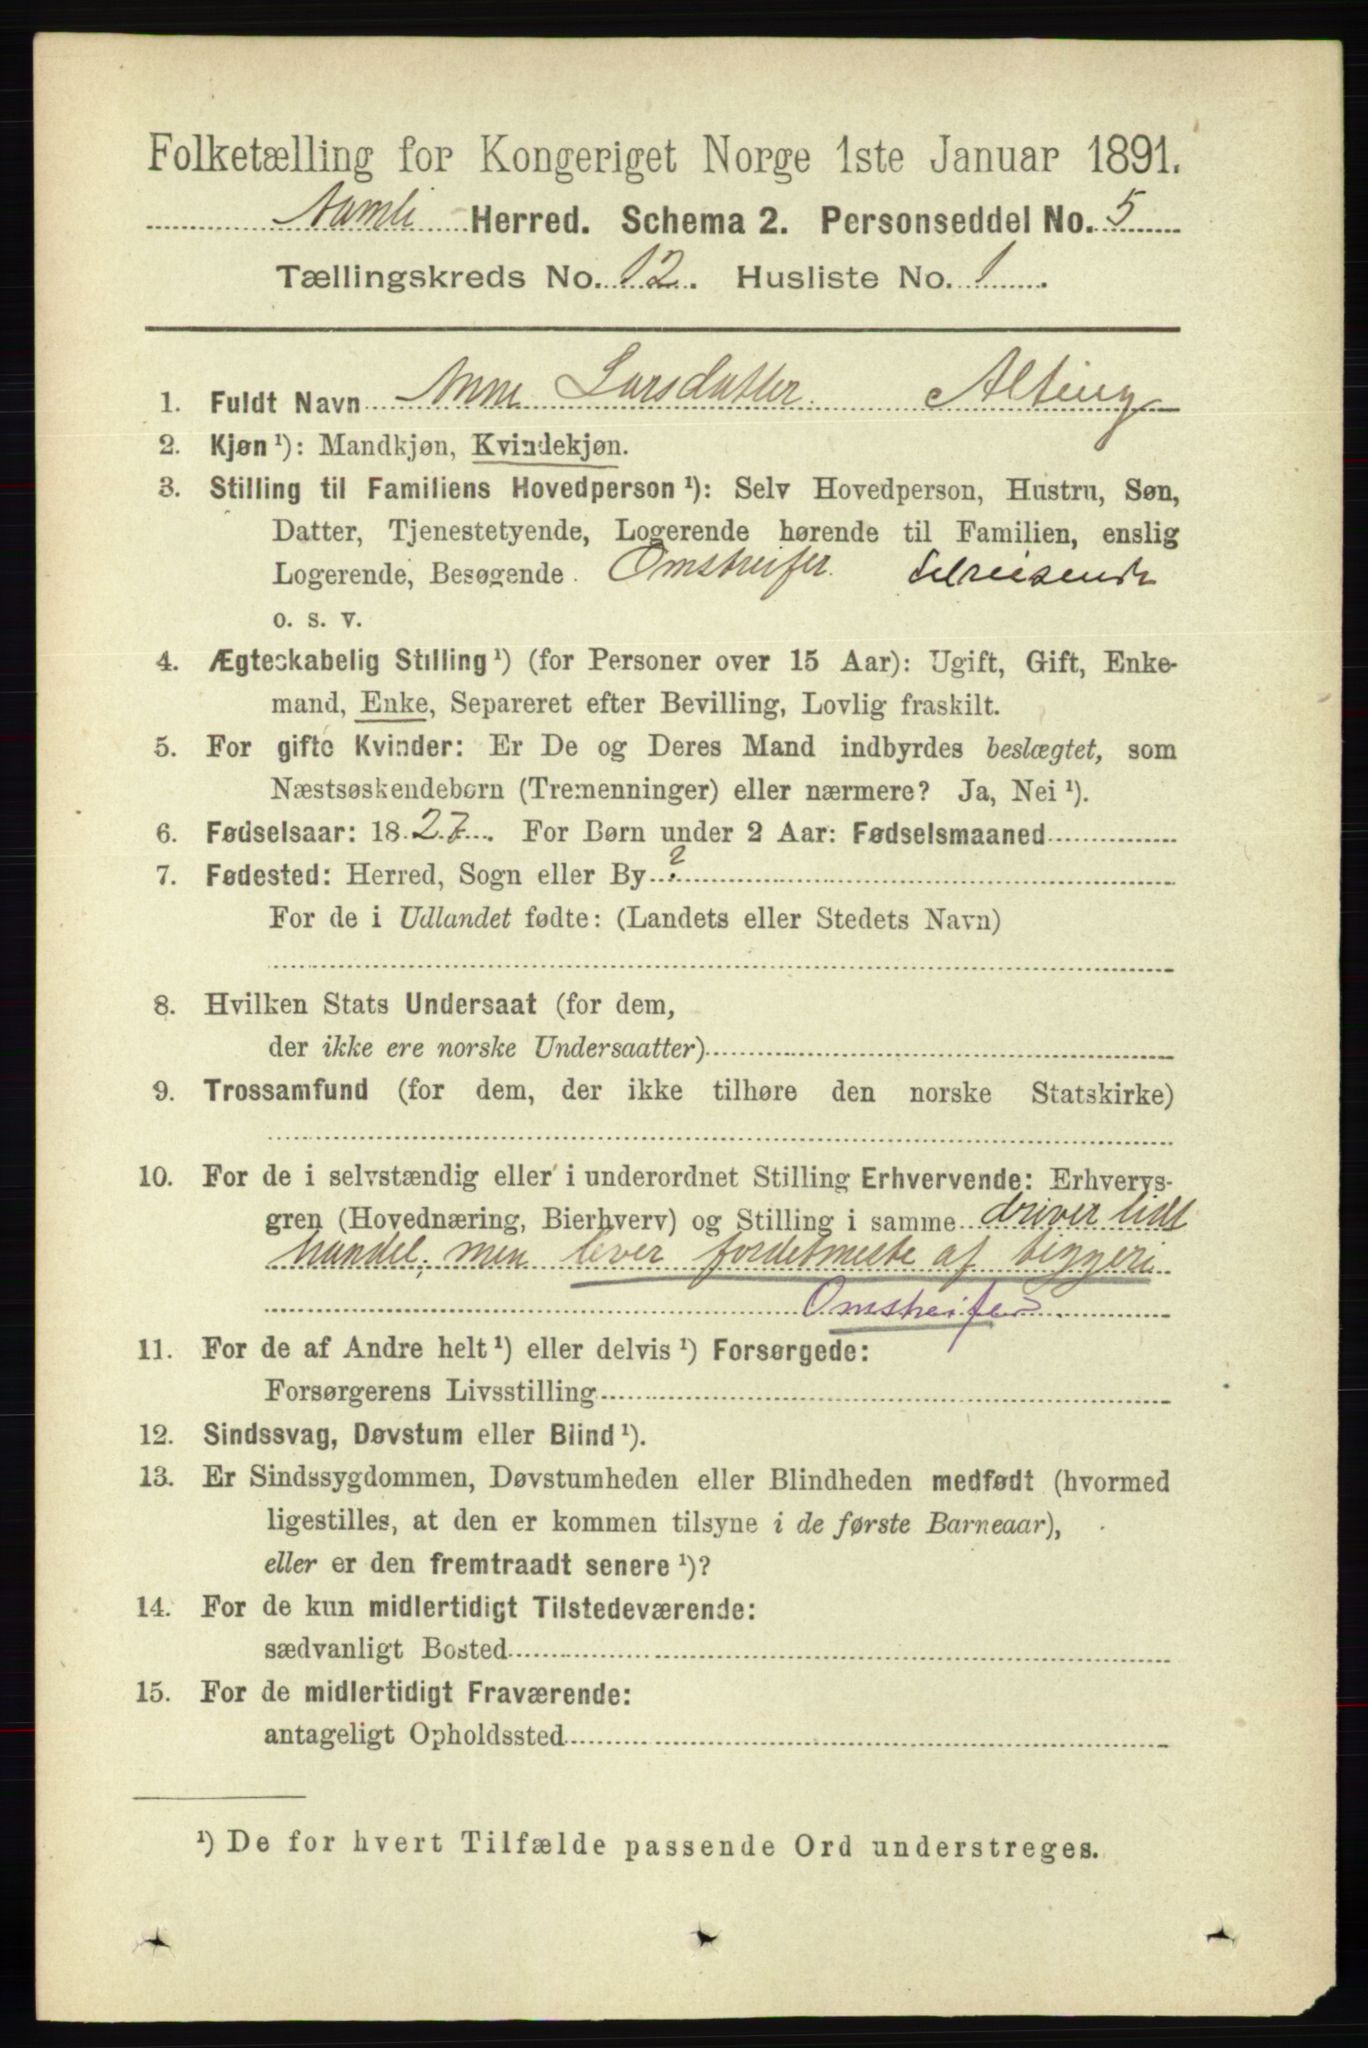 Folketælling for Kongeriget Norge 1ste Januar 1891.
Aamli Herred. Schema 2. Personseddel No. 5
Tællingskreds No. 12. Husliste No. 1.
1. Fuldt Navn Anne Larsdatter Alting
2. Kjøn ¹): Mandkjøn, Kvindekjøn.
3. Stilling til Familiens Hovedperson ¹): Selv Hovedperson, Hustru, Søn,
Datter, Tjenestetyende, Logerende hørende til Familien, enslig
Logerende, Besøgende Omstreifer
o. s. v.
4. Ægteskabelig Stilling ¹) (for Personer over 15 Aar): Ugift, Gift, Enke-
mand, Enke, Separeret efter Bevilling, Lovlig fraskilt.
5. For gifte Kvinder: Er De og Deres Mand indbyrdes beslægtet, som
Næstsøskendebørn (Tremenninger) eller nærmere? Ja, Nei ¹).
6. Fødselsaar: 1827. For Børn under 2 Aar: Fødselsmaaned
7. Fødested: Herred, Sogn eller By ?
For de i Udlandet fødte: (Landets eller Stedets Navn)
8. Hvilken Stats Undersaat (for dem,
der ikke ere norske Undersaatter)
9. Trossamfund (for dem, der ikke tilhøre den norske Statskirke)
10. For de i selvstændig eller i underordnet Stilling Erhvervende: Erhvervs-
gren (Hovednæring, Bierhverv) og Stilling i samme driver lidt
handel; men lever fordetmeste af tiggeri
Omstreifer.
11. For de af Andre helt ¹) eller delvis ¹) Forsørgede:
Forsørgerens Livsstilling
12. Sindssvag, Døvstum eller Blind ¹).
13. Er Sindssygdommen, Døvstumheden eller Blindheden medfødt (hvormed
ligestilles, at den er kommen tilsyne i de første Barneaar),
eller er den fremtraadt senere ¹)?
14. For de kun midlertidigt Tilstedeværende:
sædvanligt Bosted
15. For de midlertidigt Fraværende:
antageligt Opholdssted
¹) De for hvert Tilfælde passende Ord understreges.